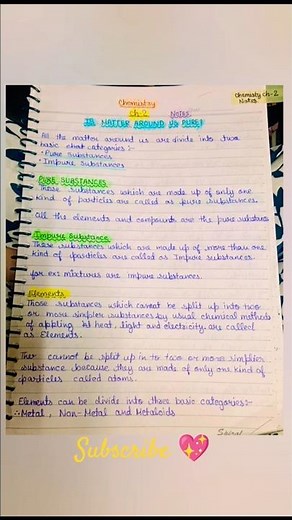 Chemistry
ch-2 NOTES
IS MATTER AROUND US PURE?
chemistry ch-2
Notes
All the matter around us are divide into two
basic categories :-
• Pure Substances
• Impure Substances
PURE SUBSTANCES
Those substances which are made up of only one
kind of particles are called as pure substances.
All the elements and compounds are the pure
Impure Substance
Those substances which are made up of more than one
kind of particles are called as Impure substances.
for ex:- mixtures are impure substances
Elements
Those substances which cannot be split up into two
or more simpler substances by usual chemical methods
of appling heat, light and electricity are called
as Elements.
cannot be split up in to two or more simplier
substance because they are made of only one kind of
particles called atoms.
Elements can be divide into three basic categories:-
Metal, Non-Metal and Metalloids
Subscribe 💖